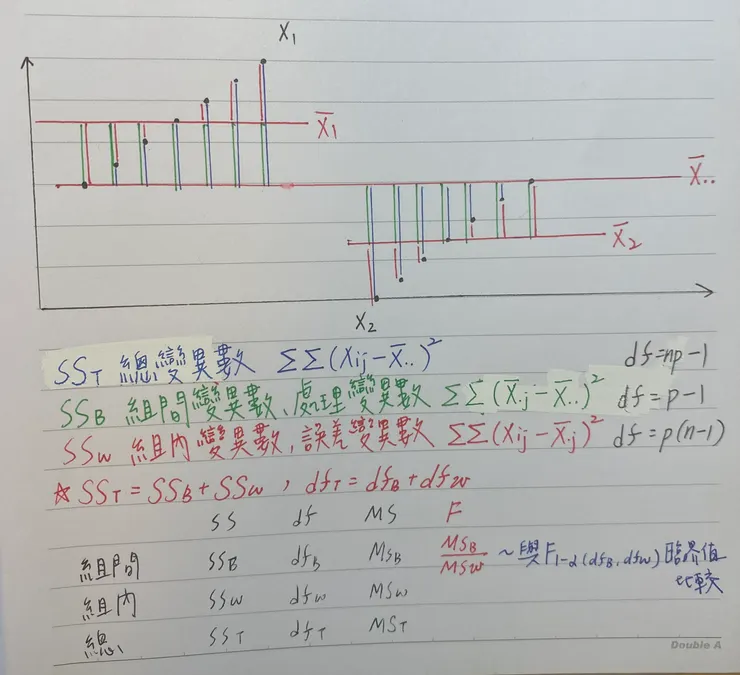 X₁
X̄₁
X̄..
X̄₂
X₂
SS_T 總變異數 ΣΣ(Xij-X̄..)² df=np-1
SS_B 組間變異數,處理變異數 ΣΣ(X̄.j-X̄..)² df=p-1
SS_W 組內變異數,誤差變異數 ΣΣ(Xij-X̄.j)² df=p(n-1)
☆ SS_T=SS_B+SS_W, df_T=df_B+df_W
SS df MS F
組間 SS_B df_B MS_B MS_B/MS_W ~與F₁₋α(df_B, df_W)臨界值
比較
組內 SS_W df_W MS_W
總 SS_T df_T MS_T
Double A